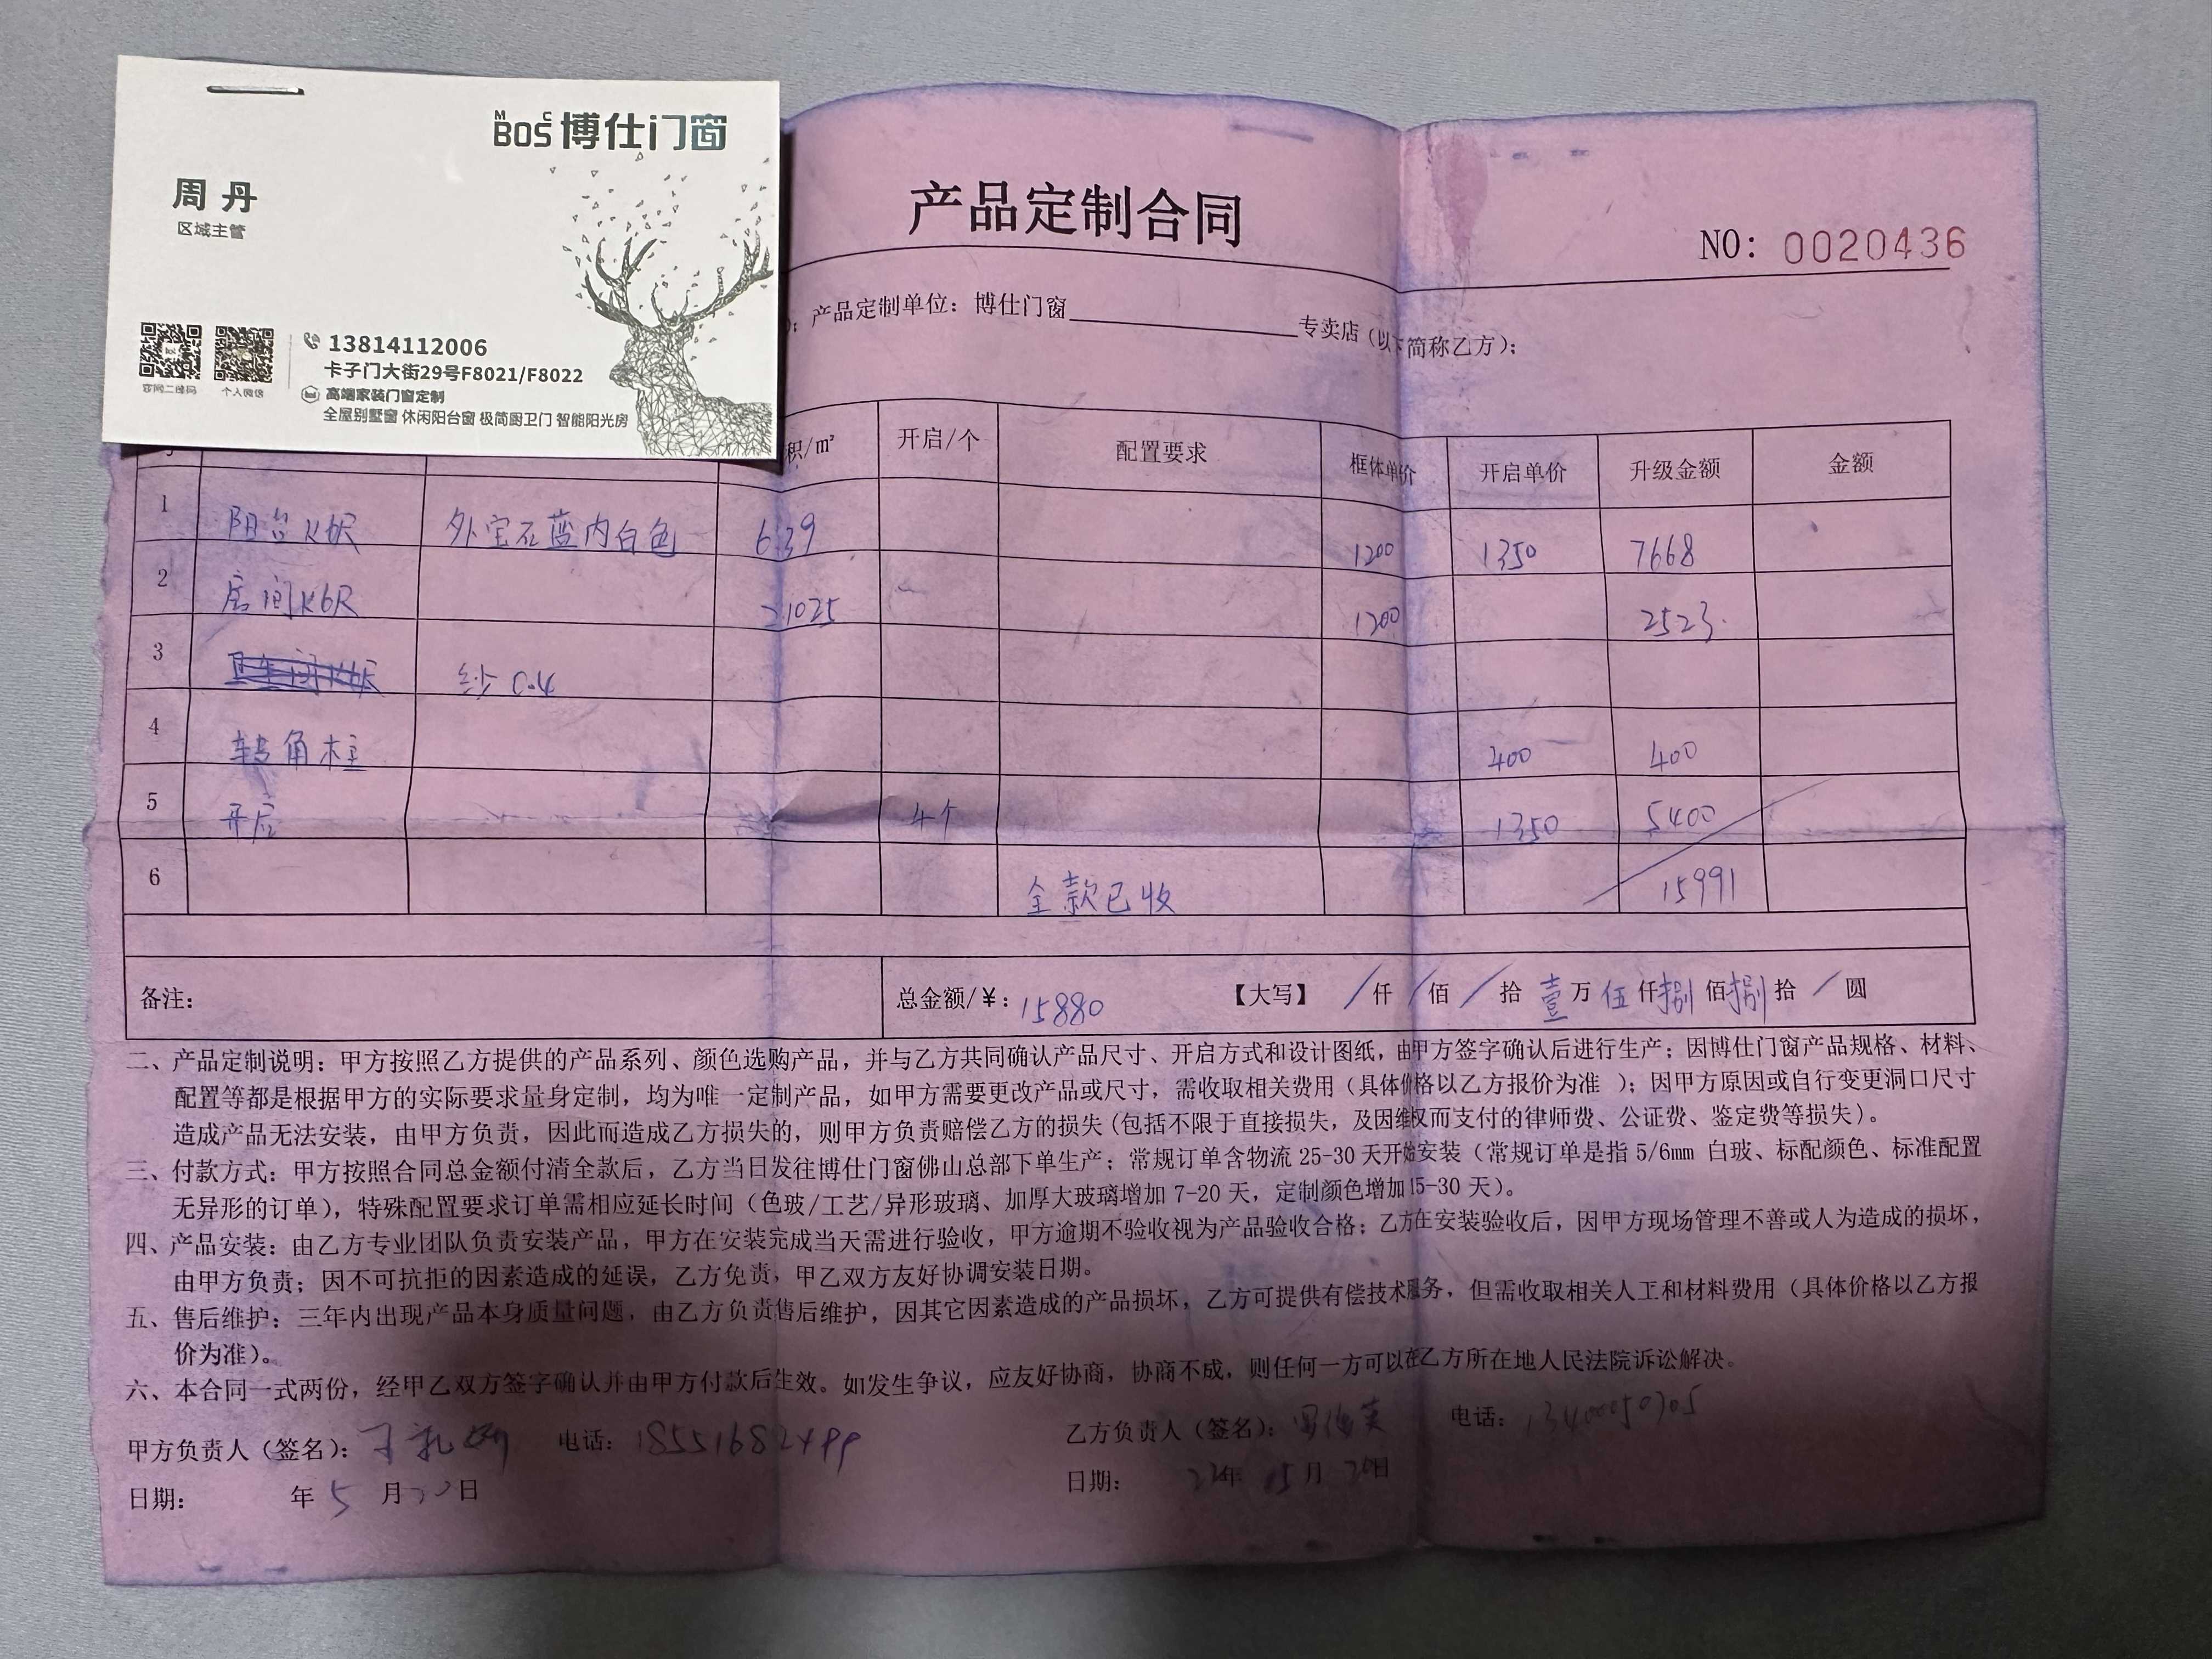 MBOSC 博仕门窗
周丹
区域主管
13814112006
卡子门大街29号F8021/F8022
高端家装门窗定制
全屋别墅窗 休闲阳台窗 极简厨卫门 智能阳光房
官网二维码 个人微信
产品定制合同
NO: 0020436
产品定制单位：博仕门窗 专卖店（以下简称乙方）；
积/m² 开启/个 配置要求 框体单价 开启单价 升级金额 金额
1 阳台K6R 外宝石蓝内白色 6.39 1200 1350 7668
2 房间K6R 2.1025 1200 2523
3 纱 C.4
4 转角柱 400 400
5 开启 4个 1350 5400
6 全款已收 15991
备注： 总金额/¥：15880 【大写】 / 仟 / 佰 / 拾 壹 万 伍 仟 捌 佰 捌 拾 / 圆
二、产品定制说明：甲方按照乙方提供的产品系列、颜色选购产品，并与乙方共同确认产品尺寸、开启方式和设计图纸，由甲方签字确认后进行生产；因博仕门窗产品规格、材料、
配置等都是根据甲方的实际要求量身定制，均为唯一定制产品，如甲方需要更改产品或尺寸，需收取相关费用（具体价格以乙方报价为准 ）；因甲方原因或自行变更洞口尺寸
造成产品无法安装，由甲方负责，因此而造成乙方损失的，则甲方负责赔偿乙方的损失(包括不限于直接损失，及因维权而支付的律师费、公证费、鉴定费等损失)。
三、付款方式：甲方按照合同总金额付清全款后，乙方当日发往博仕门窗佛山总部下单生产；常规订单含物流 25-30 天开始安装（常规订单是指 5/6mm 白玻、标配颜色、标准配置
无异形的订单），特殊配置要求订单需相应延长时间（色玻/工艺/异形玻璃、加厚大玻璃增加 7-20 天，定制颜色增加15-30 天）。
四、产品安装：由乙方专业团队负责安装产品，甲方在安装完成当天需进行验收，甲方逾期不验收视为产品验收合格；乙方在安装验收后，因甲方现场管理不善或人为造成的损坏，
由甲方负责；因不可抗拒的因素造成的延误，乙方免责，甲乙双方友好协调安装日期。
五、售后维护：三年内出现产品本身质量问题，由乙方负责售后维护，因其它因素造成的产品损坏，乙方可提供有偿技术服务，但需收取相关人工和材料费用（具体价格以乙方报
价为准）。
六、本合同一式两份，经甲乙双方签字确认并由甲方付款后生效。如发生争议，应友好协商，协商不成，则任何一方可以在乙方所在地人民法院诉讼解决。
甲方负责人（签名）： 电话： 乙方负责人（签名）： 电话：
日期： 年 5 月 日 日期： 年 月 20日